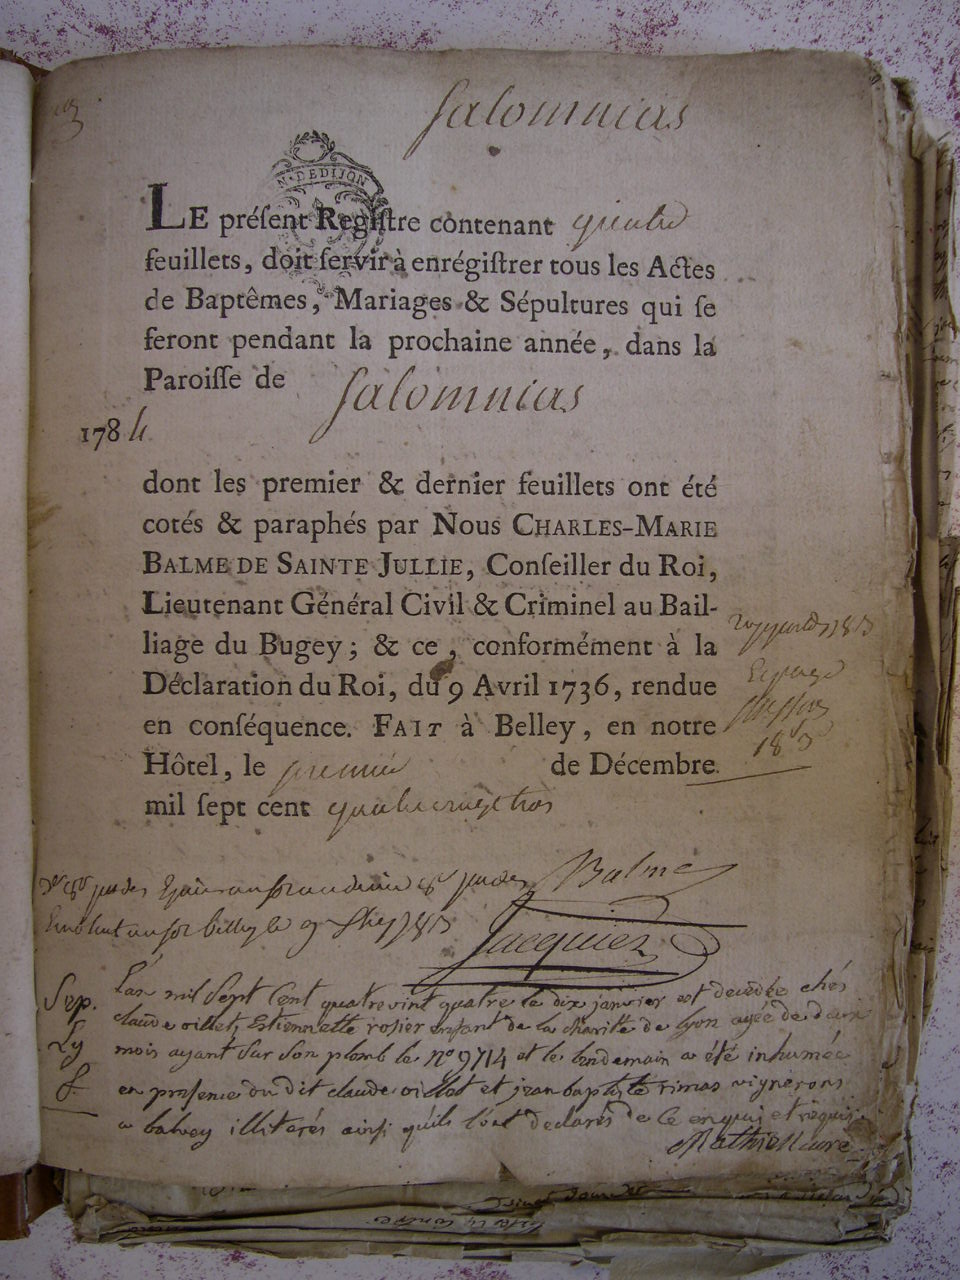 Salomnias
N. DE DIJON
LE préſent Regiſtre contenant quatre
feuillets, doit ſervir à enrégiſtrer tous les Actes
de Baptêmes, Mariages & Sépultures qui ſe
feront pendant la prochaine année, dans la
Paroiſſe de Salomnias
1784
dont les premier & dernier feuillets ont été
cotés & paraphés par Nous CHARLES-MARIE
BALME DE SAINTE JULLIE, Conſeiller du Roi,
Lieutenant Général Civil & Criminel au Bail-
liage du Bugey ; & ce, conformément à la
Déclaration du Roi, du 9 Avril 1736, rendue
en conſéquence. FAIT à Belley, en notre
Hôtel, le premier de Décembre
mil ſept cent quatre vingt trois
Balme
Jacquier
Sep. L'an mil Sept Cent quatrevint quatre le dix janvier est décédée chés
claude villet, Estiennette rosier enfant de la charité de lyon agée de deux
mois ayant sur son plomb le n° 9714 et le lendemain a été inhumée
en presence du dit claude villet et jean baptiste rimas vignerons
a balvey illiterés ainsi qu'ils l'ont declarés de ce enquis et requis
Mathieu curé